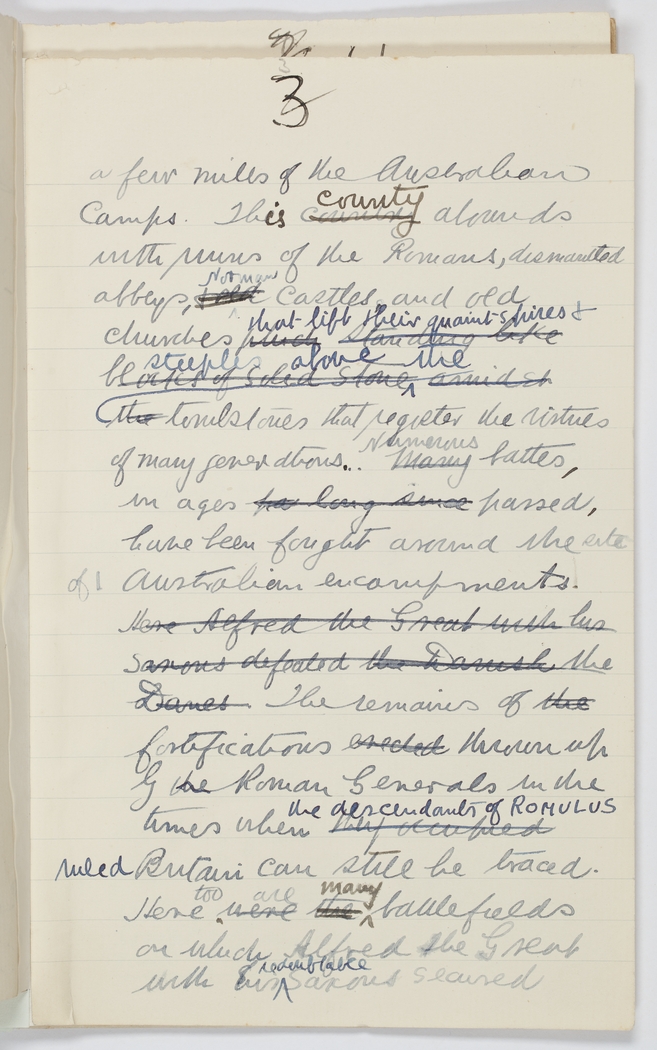 3
a few miles of the Australian
Camps. This county abounds
with ruins of the Romans, dismantled
abbeys, Norman Castles and old
churches that lift their quaint spires &
steeples above the
tombstones that register the virtues
of many generations... Numerous battles,
in ages passed,
have been fought around the site
of Australian encampments.
Here Alfred the Great with his
Saxons defeated the Danish the
Danes. The remains of the
fortifications erected thrown up
by the Roman Generals in the
times when the descendants of ROMULUS
they occupied
ruled Britain can still be traced.
Here too are many battlefields
on which Alfred the Great
with his redoubtable Saxons secured